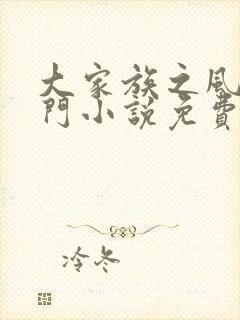 大家族之風
門小説免費
冷冬